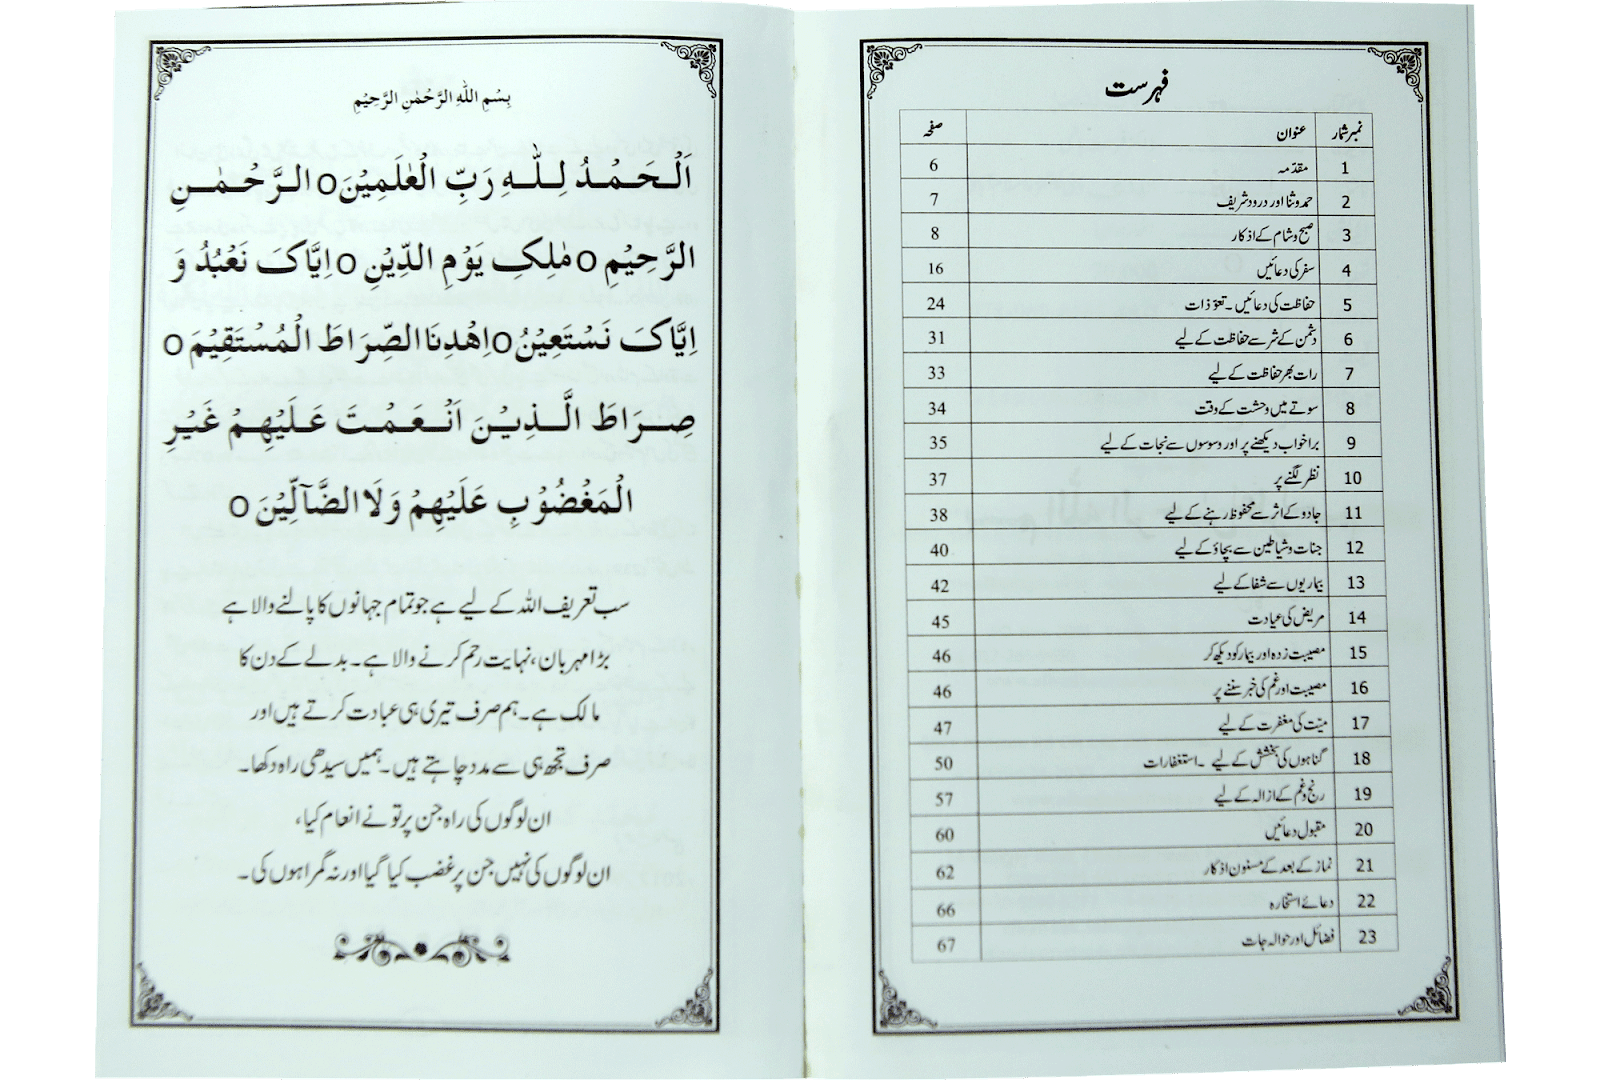 بِسْمِ اللهِ الرَّحْمٰنِ الرَّحِيْمِ
اَلْحَمْدُ لِلّٰهِ رَبِّ الْعٰلَمِيْنَ o الرَّحْمٰنِ
الرَّحِيْمِ o مٰلِكِ يَوْمِ الدِّيْنِ o اِيَّاكَ نَعْبُدُ وَ
اِيَّاكَ نَسْتَعِيْنُ o اِهْدِنَا الصِّرَاطَ الْمُسْتَقِيْمَ o
صِرَاطَ الَّذِيْنَ اَنْعَمْتَ عَلَيْهِمْ غَيْرِ
الْمَغْضُوْبِ عَلَيْهِمْ وَلَا الضَّآلِّيْنَ o
سب تعریف اللہ کے لیے ہے جو تمام جہانوں کا پالنے والا ہے
بڑا مہربان، نہایت رحم کرنے والا ہے۔ بدلے کے دن کا
مالک ہے۔ ہم صرف تیری ہی عبادت کرتے ہیں اور
صرف تجھ ہی سے مدد چاہتے ہیں۔ ہمیں سیدھی راہ دکھا۔
ان لوگوں کی راہ جن پر تو نے انعام کیا،
ان لوگوں کی نہیں جن پر غضب کیا گیا اور نہ گمراہوں کی۔
فہرست
نمبر شمار عنوان صفحہ
1 مقدّمہ 6
2 حمد و ثنا اور درود شریف 7
3 صبح و شام کے اذکار 8
4 سفر کی دعائیں 16
5 حفاظت کی دعائیں ۔ تعوّذات 24
6 دشمن کے شر سے حفاظت کے لیے 31
7 رات بھر حفاظت کے لیے 33
8 سوتے میں وحشت کے وقت 34
9 برا خواب دیکھنے پر اور وسوسوں سے نجات کے لیے 35
10 نظر لگنے پر 37
11 جادو کے اثر سے محفوظ رہنے کے لیے 38
12 جنات و شیاطین سے بچاؤ کے لیے 40
13 بیماریوں سے شفا کے لیے 42
14 مریض کی عیادت 45
15 مصیبت زدہ اور بیمار کو دیکھ کر 46
16 مصیبت اور غم کی خبر سننے پر 46
17 میّت کی مغفرت کے لیے 47
18 گناہوں کی بخشش کے لیے ۔ استغفارات 50
19 رنج و غم کے ازالہ کے لیے 57
20 مقبول دعائیں 60
21 نماز کے بعد کے مسنون اذکار 62
22 دعائے استخارہ 66
23 فضائل اور حوالہ جات 67